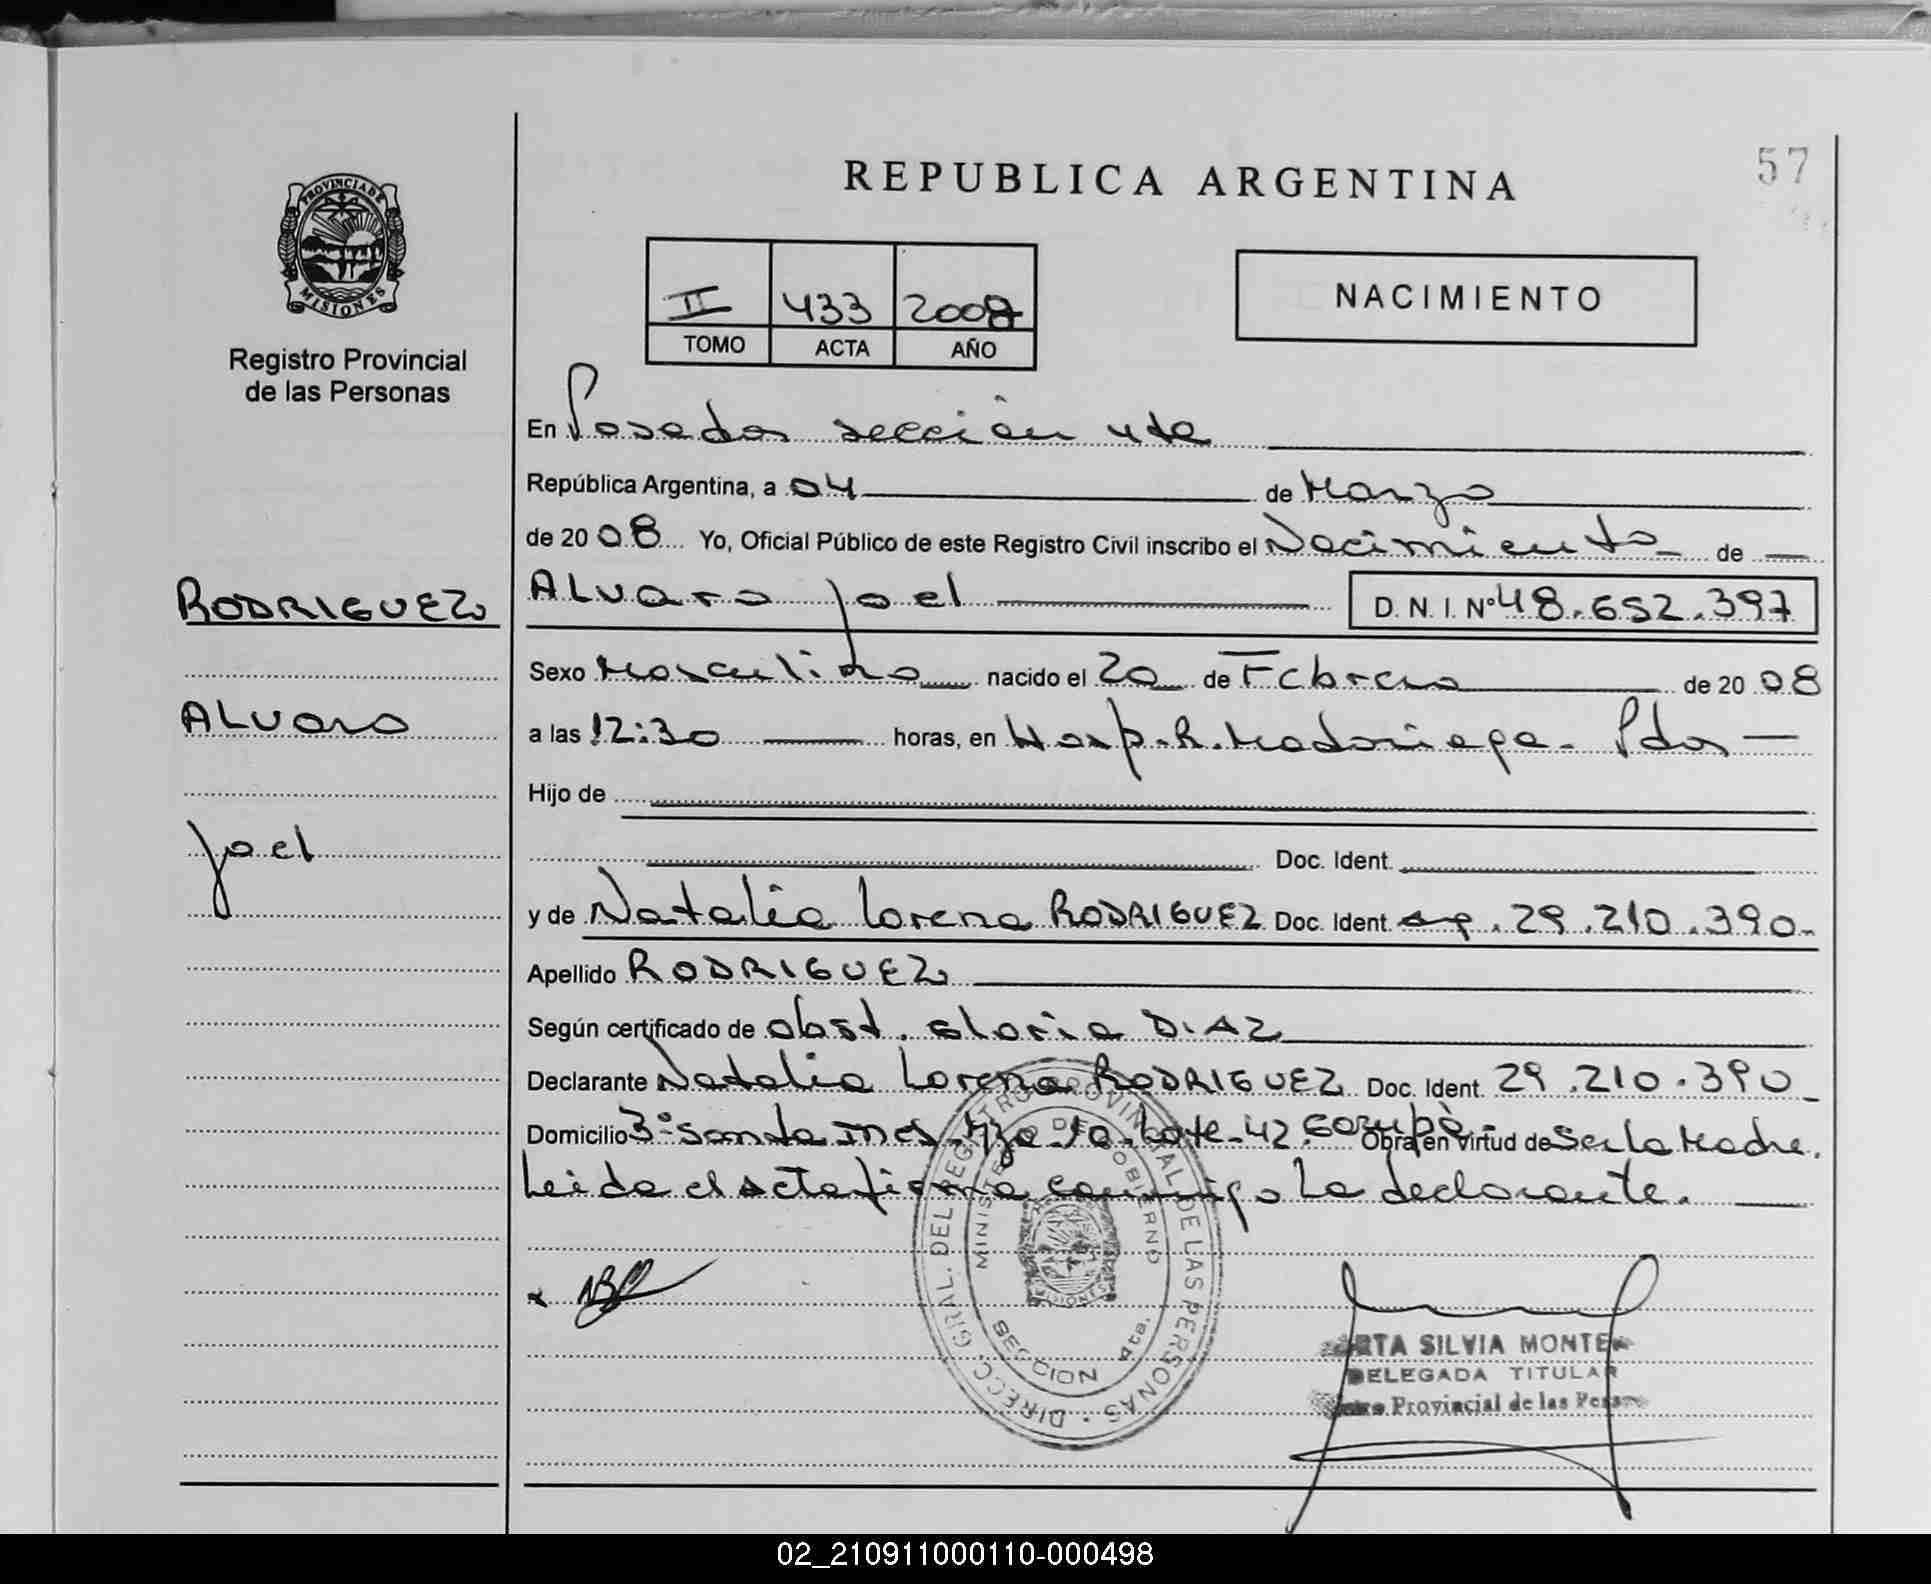 57
REPUBLICA ARGENTINA
PROVINCIA DE
MISIONES
Registro Provincial
de las Personas
II 433 2008
TOMO ACTA AÑO
NACIMIENTO
En Posadas sección 4ta
República Argentina, a 04 de Marzo
de 20 08 Yo, Oficial Público de este Registro Civil inscribo el Nacimiento de
RODRIGUEZ
Alvaro Joel D.N.I. Nº 48.652.397
Sexo Masculino nacido el 20 de Febrero de 20 08
Alvaro
a las 12:30 horas, en Hosp. R. Madariaga. Pdas
Hijo de
Joel
Doc. Ident.
y de Natalia Lorena RODRIGUEZ Doc. Ident. 29.210.390
Apellido RODRIGUEZ
Según certificado de obst. Gloria DIAZ
Declarante Natalia Lorena RODRIGUEZ Doc. Ident. 29.210.390
Domicilio Santa Ines Mza 10 Lote 42 Garupá Obra en virtud de Ser la Madre.
Leida el acta firma conmigo la declarante.
DIRECC. GRAL. DEL REGISTRO PROVINCIAL DE LAS PERSONAS
MINISTERIO DE GOBIERNO
MISIONES
SECCION 4ta.
SILVIA
DELEGADA TITULAR
Provincial de las
02_210911000110-000498